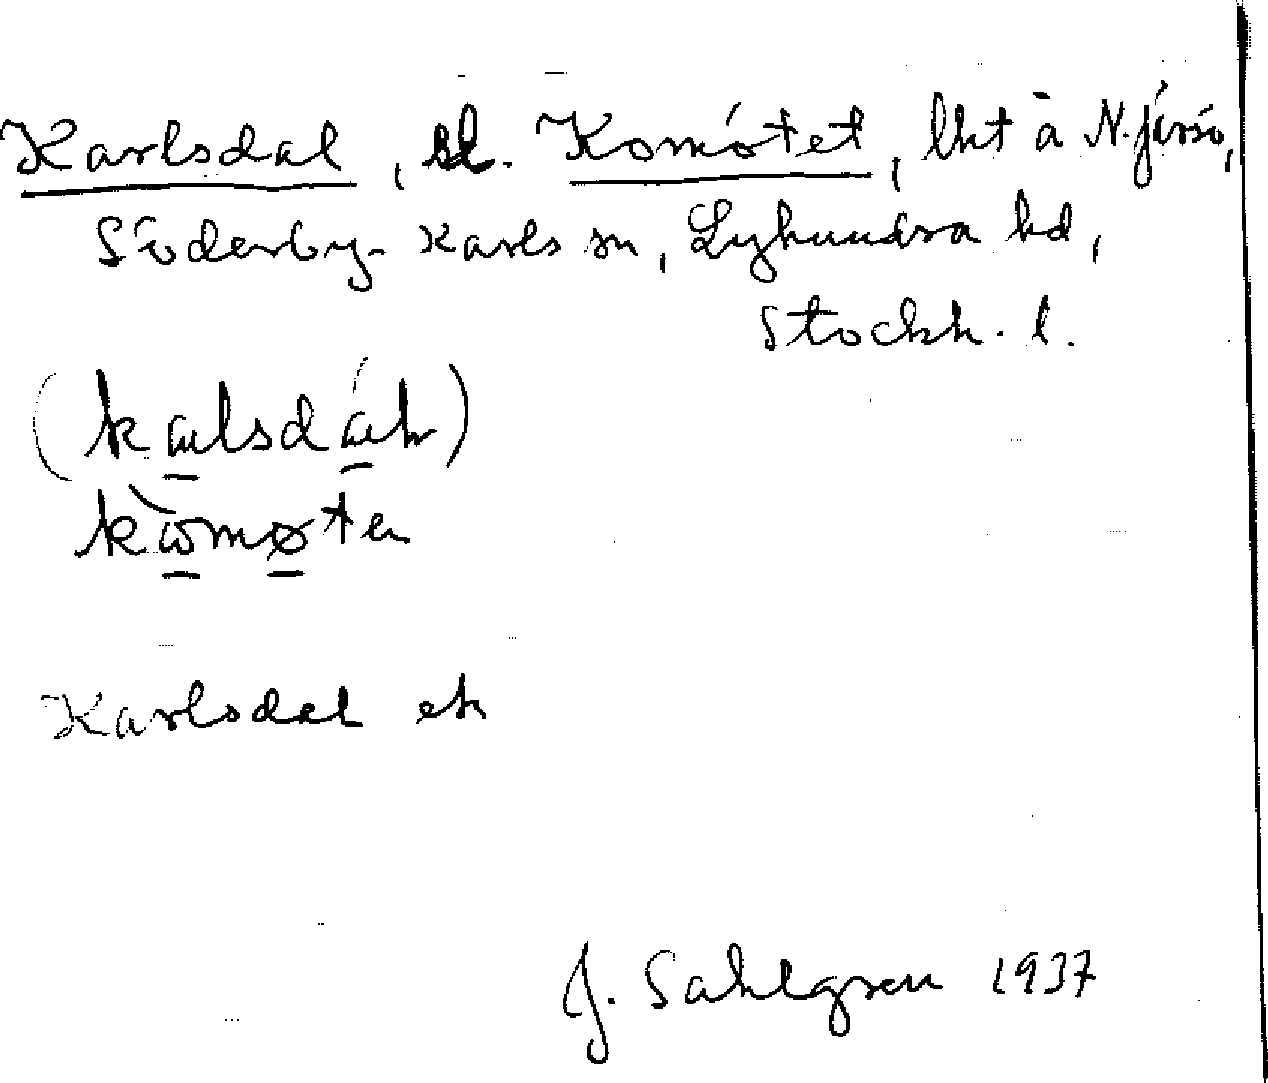 Karlsdal, el. Komötet, lht å N. Järsö,
Söderby-Karls sn, Lyhundra hd,
Stockh. l.
(kalsdáh)
kòmøten
Karlsdal ek
J. Sahlgren 1937